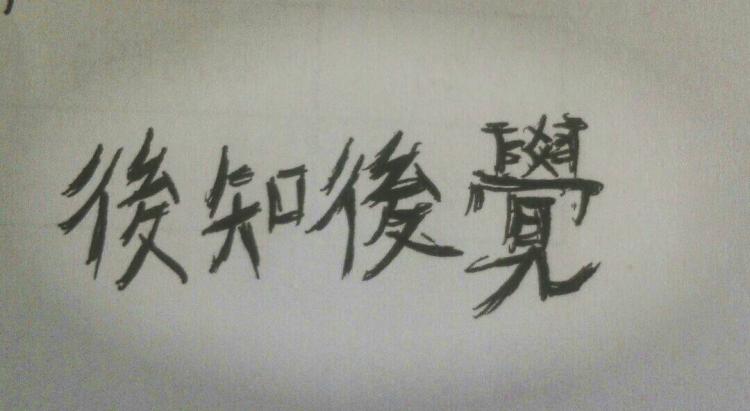 後知後覺